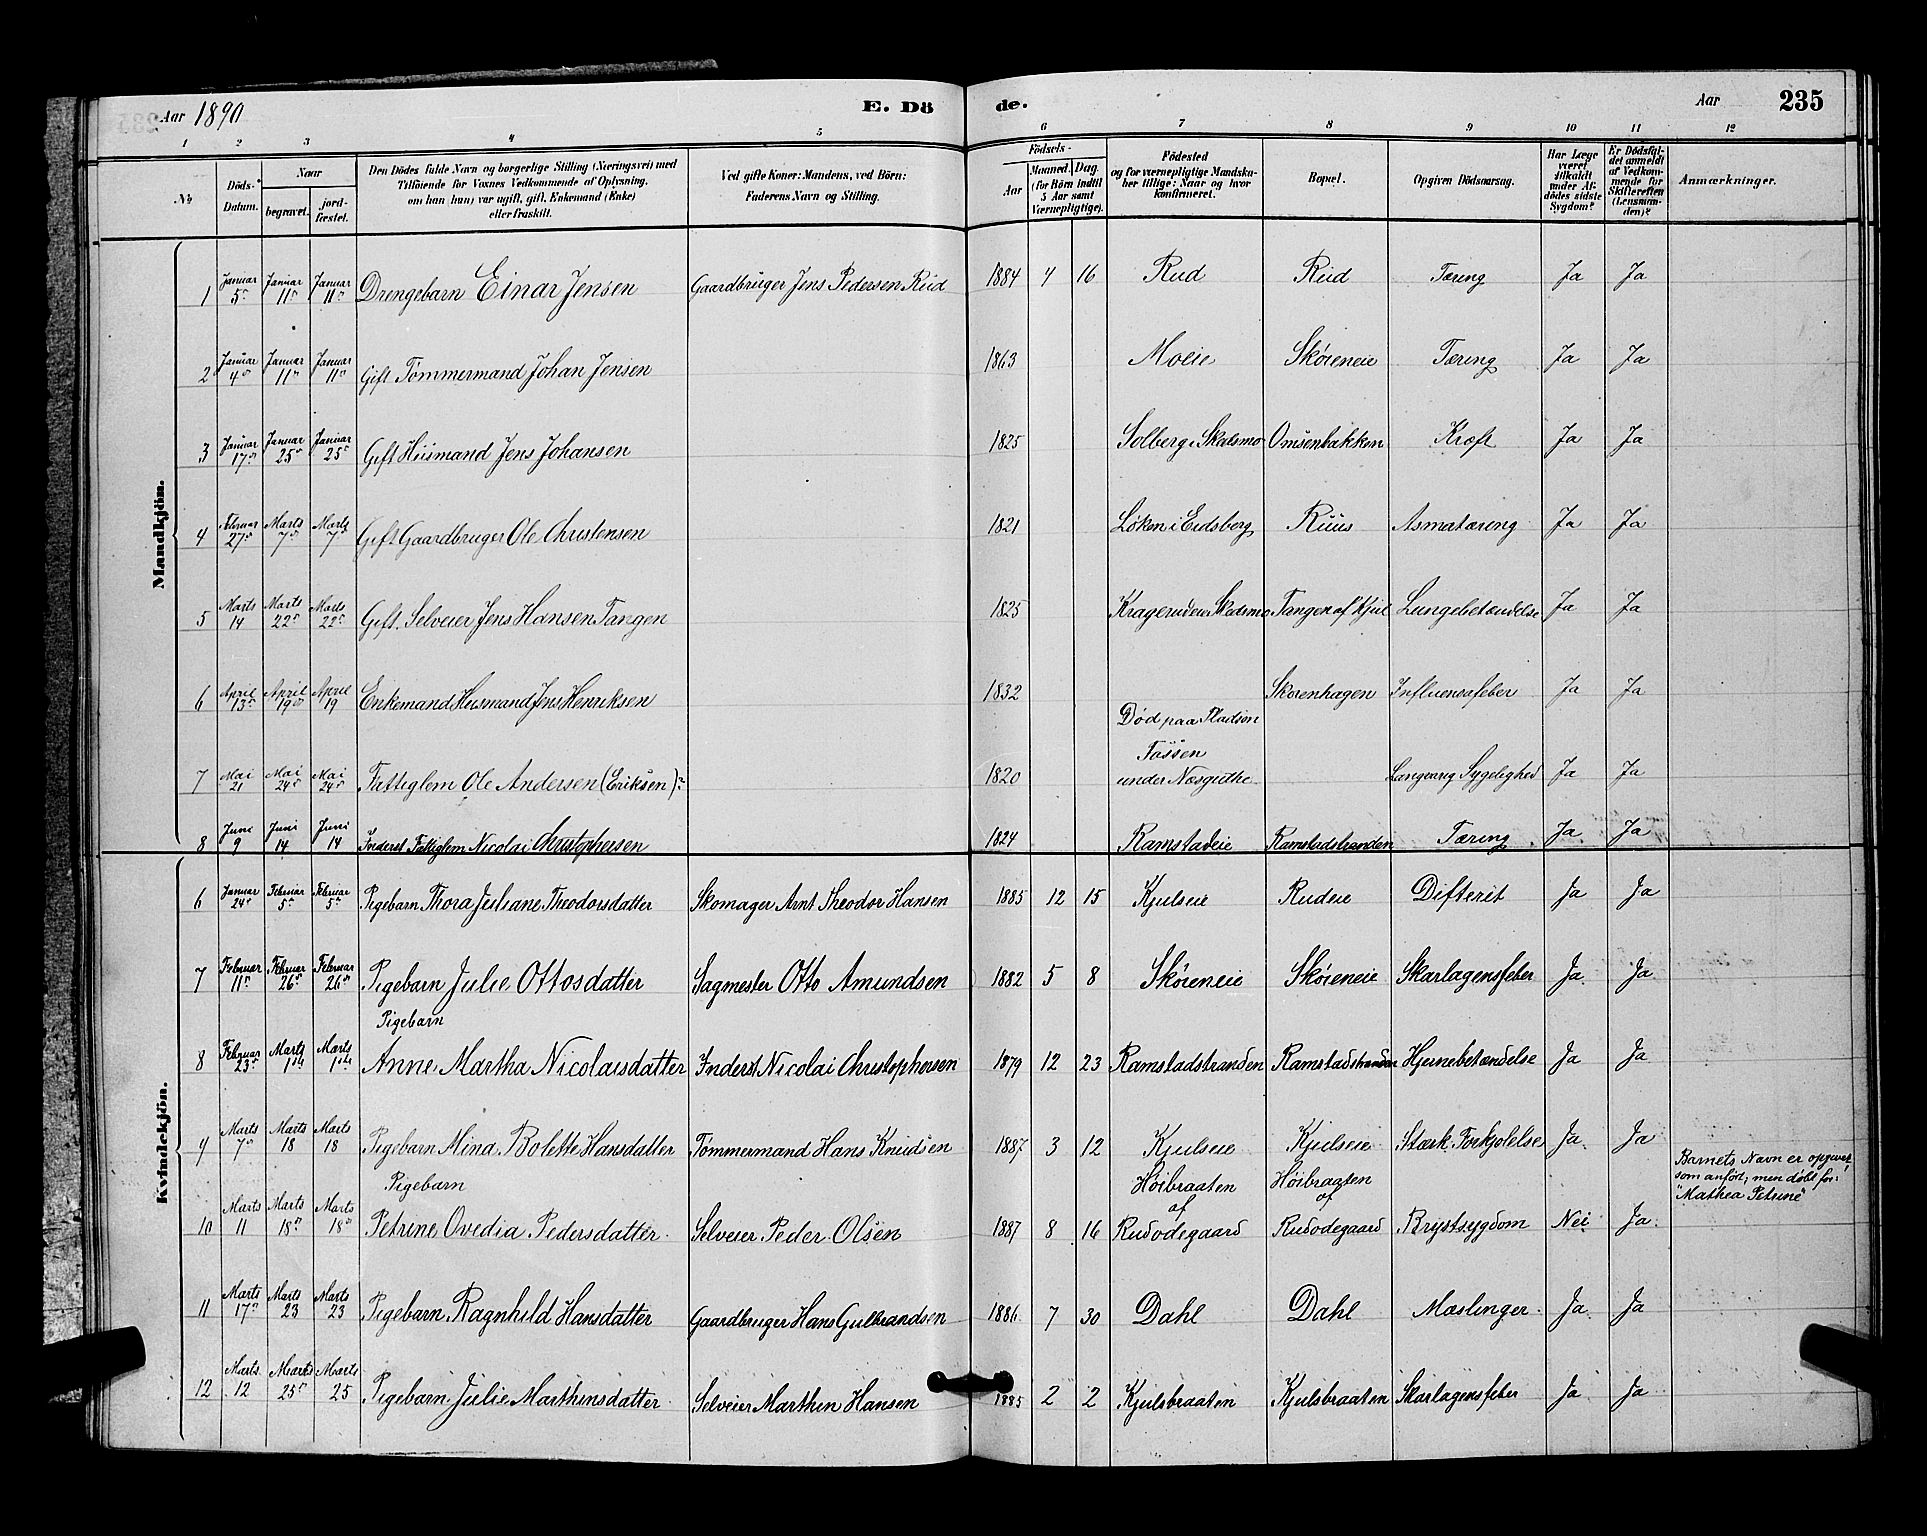 Aar 1890 E. Dö de. Aar 235
1 2 3 4 5 6 7 8 9 10 11 12
№ Döds-Datum. Naar begravet. jordfæstet. Den Dödes fulde Navn og borgerlige Stilling (Næringsvei) med Tilföiende for Voxnes Vedkommende af Oplysning, om han (hun) var ugift, gift, Enkemand (Enke) eller fraskilt. Ved gifte Koner: Mandens, ved Börn: Faderens Navn og Stilling. Födsels- Aar Maaned. Dag. (for Börn indtil 5 Aar samt Værnepligtige). Födested og for værnepligtige Mandskaber tillige: Naar og hvor konfirmeret. Bopæl. Opgiven Dödsaarsag. Har Læge været tilkaldt under Afdödes sidste Sygdom? Er Dödsfaldet anmeldt af Vedkommende for Skifteretten (Lensmanden)? Anmærkninger.
Mandkjön.
1 Januar 5 Januar 11 Januar 11 Drengebarn Einar Jensen Gaardbruger Jens Pedersen Rud 1884 4 16 Rud Rud Tæring Ja Ja
2 Januar 4 Januar 11 Januar 11 Gift Tømmermand Johan Jensen 1863 Moeie Skøieneie Tæring Ja Ja
3 Januar 17 Januar 25 Januar 25 Gift Husmand Jens Johansen 1825 Solberg i Skedsmo Onsenbakken Kræft Ja Ja
4 Februar 27 Marts 7 Marts 7 Gift Gaardbruger Ole Christensen 1821 Løken i Eidsberg Ruus Asmatæring Ja Ja
5 Marts 14 Marts 22 Marts 22 Gift. Selveier Jens Hansen Tangen 1825 Kragerudeie Skedsmo Tangen af Kjul Lungebetændelse Ja Ja
6 April 13 April 19 April 19 Enkemand Husmand Jens Henriksen 1832 Skøienhagen Influensafeber Ja Ja
Død paa Pladsen
Tøssen
7 Mai 21 Mai 24 Mai 24 Fattiglem Ole Andersen (Eriksen)? 1820 under Næsguthe Langvarig Sygelighed Ja Ja
8 Juni 9 Juni 14 Juni 14 Inderst Fattiglem Nicolai Christophersen 1824 Ramstadeie Ramstadstranden Tæring Ja Ja
Kvindekjön.
6 Januar 24 Februar 5 Februar 5 Pigebarn Thora Juliane Theodorsdatter Skomager Arnt Theodor Hansen 1885 12 15 Kjulseie Rudeie Difterit Ja Ja
7 Februar 11 Februar 26 Februar 26 Pigebarn Julie Ottosdatter Sagmester Otto Amundsen 1882 5 8 Skøieneie Skøieneie Skarlagensfeber Ja Ja
Pigebarn
8 Februar 23 Marts 1ste Marts 1ste Anne Martha Nicolaisdatter Inderst Nicolai Christophersen 1879 12 23 Ramstadstranden Ramstadstranden Hjernebetændelse Ja Ja
9 Marts 7 Marts 18 Marts 18 Pigebarn Mina Bolette Hansdatter Tømmermand Hans Knudsen 1887 3 12 Kjulseie Kjulseie Stærk Forkjølelse Ja Ja
Pigebarn Høibraaten af Høibraaten af Barnets Navn er opgivet
som anført, men døbt for:
"Mathea Petrine"
10 Marts 11 Marts 18 Marts 18 Petrine Ovedia Pedersdatter Selveier Peder Olsen 1887 8 16 Rudødegaard Rudødegaard Brystsygdom Nei Ja
11 Marts 17 Marts 23 Marts 23 Pigebarn Ragnhild Hansdatter Gaardbruger Hans Gulbrandsen 1886 7 30 Dahl Dahl Mæslinger Ja Ja
12 Marts 12 Marts 25 Marts 25 Pigebarn Julie Marthinsdatter Selveier Marthin Hansen 1885 2 2 Kjulsbraaten Kjulsbraaten Skarlagensfeber Ja Ja